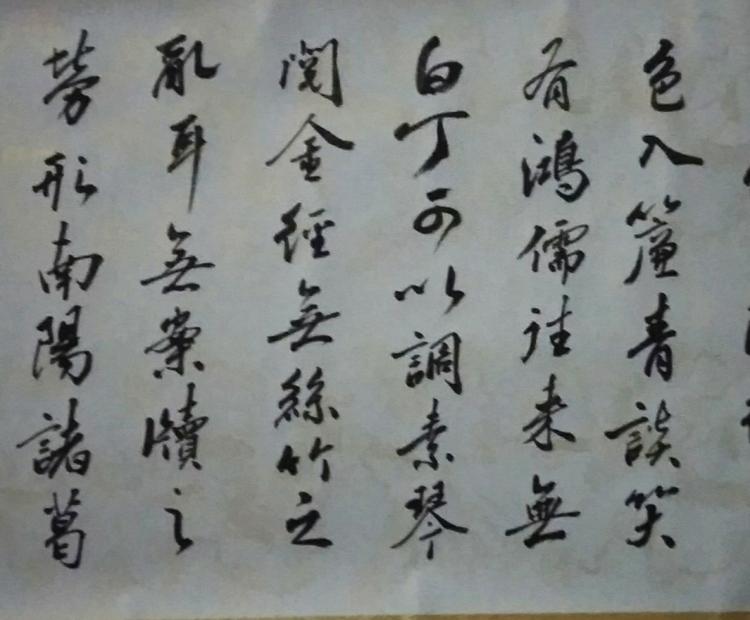 色入簾青談笑
有鴻儒往来無
白丁可以調素琴
閱金経無絲竹之
亂耳無案牘之
勞形南陽諸葛